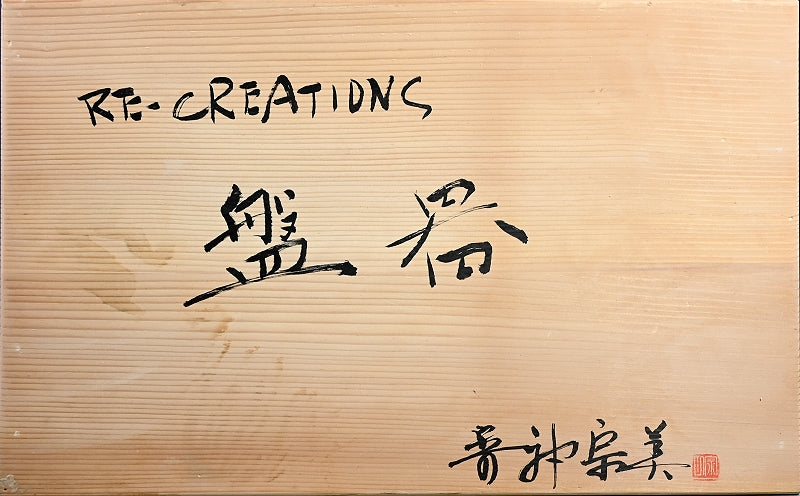 RE-CREATIONS
盤器
寄神宗美